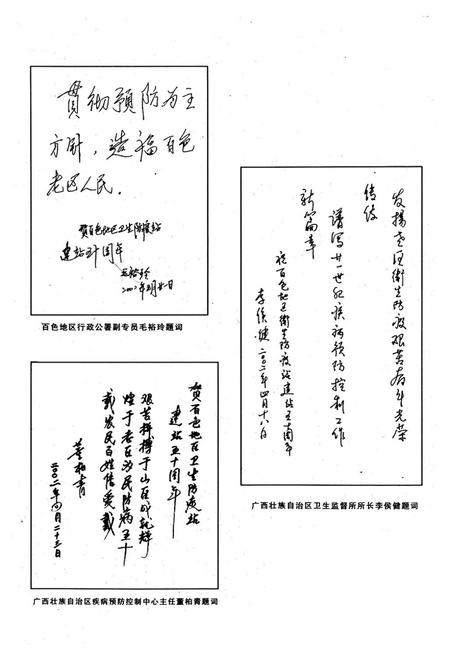 贯彻预防为主
方针，造福百色
老区人民。
贺百色地区卫生防疫站
建站五十周年
毛裕玲
百色地区行政公署副专员毛裕玲题词
发扬老区卫生防疫艰苦奋斗光荣
传统
谱写廿一世纪疾病预防控制工作
新篇章
祝百色地区卫生防疫站建站五十周年
李侯健
二〇〇二年四月十八日
广西壮族自治区卫生监督所所长李侯健题词
贺百色地区卫生防疫站
建站五十周年
艰苦拼搏于山区成就辉
煌于老区为民防病五十
载农民百姓倍爱戴
董柏青
二〇〇二年四月二十三日
广西壮族自治区疾病预防控制中心主任董柏青题词